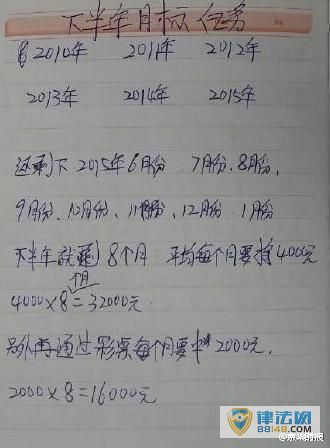 下半年目标任务
2010年 2011年 2012年
2013年 2014年 2015年
还剩下2015年6月份、7月份、8月份、
9月份、10月份、11月份、12月份、1月份
下半年就剩8个月 平均每个月要 4000元
4000×8=32000元
另外再通过彩票每个月要中2000元,
2000×8=16000元
律法网
88148.COM